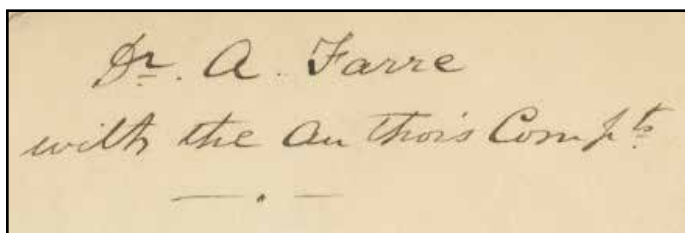 Dr. A. Farre
with the Author's Compts